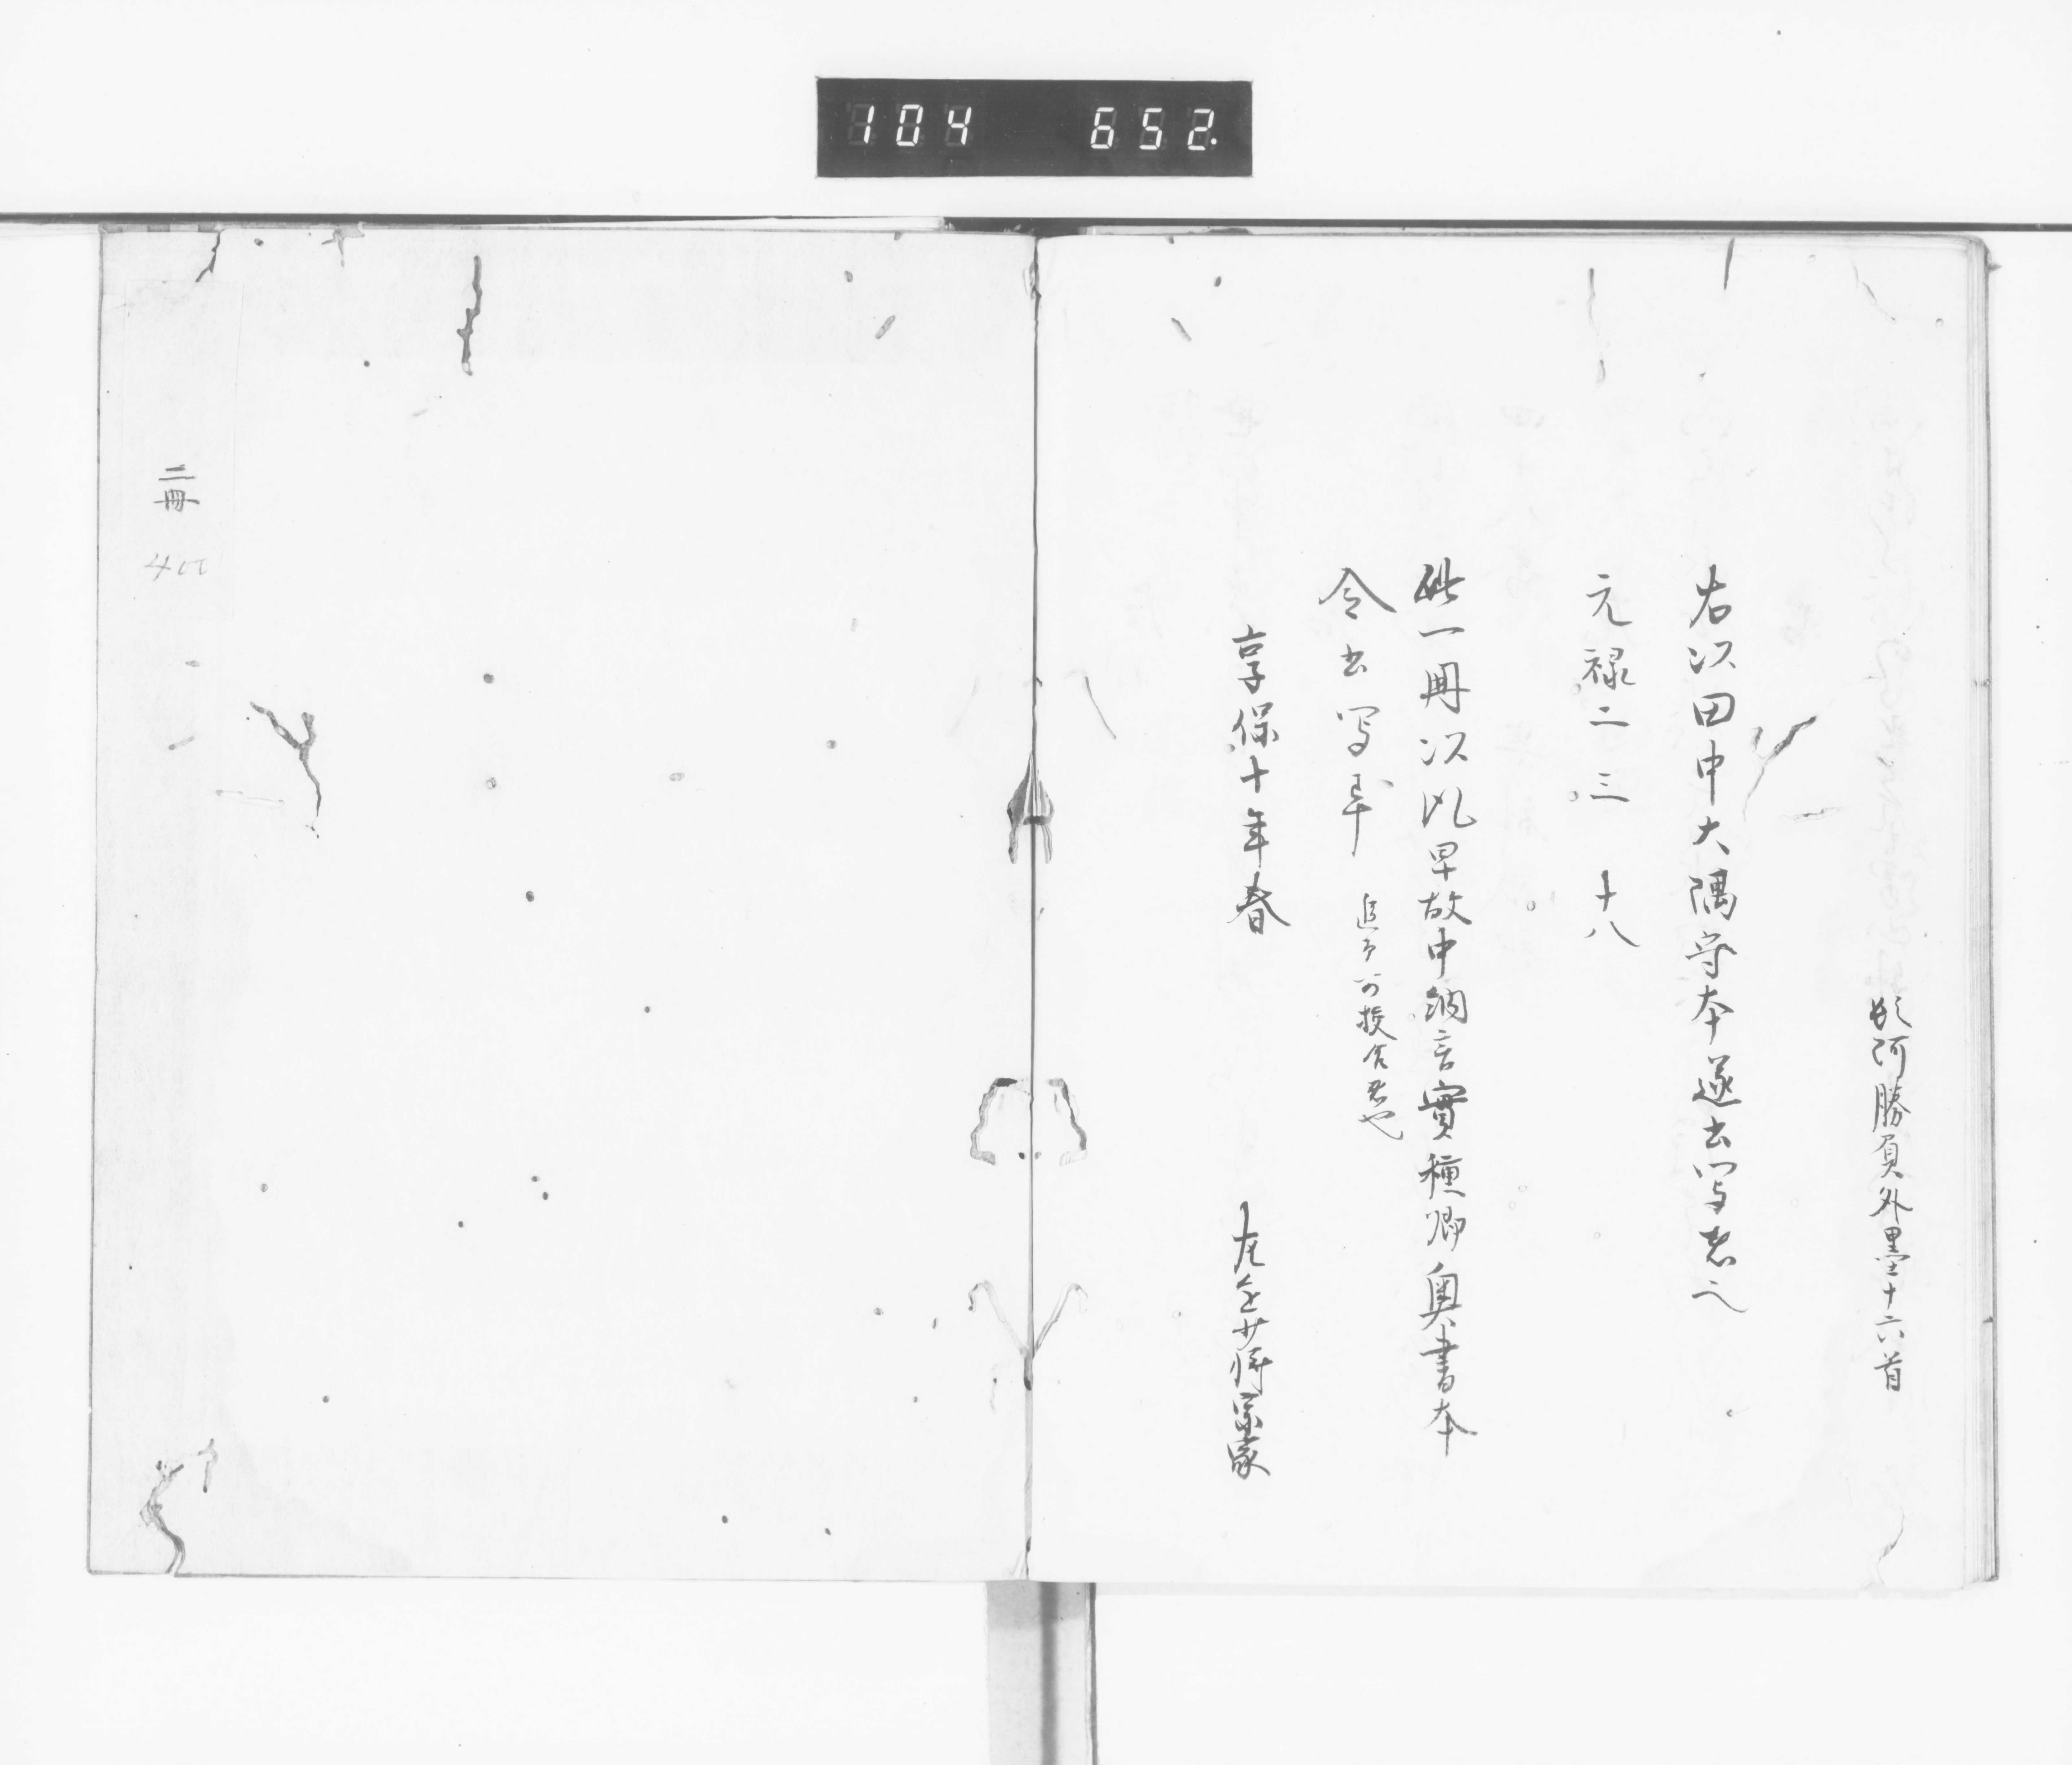 104 652.
頓阿勝負外墨十六首
右以田中大隅守本遂書写者也
元禄二 三 十八
此一冊以風早故中納言實種卿奥書本
令書写畢
追而可授合者也
享保十年春
左近少将宗家
二冊